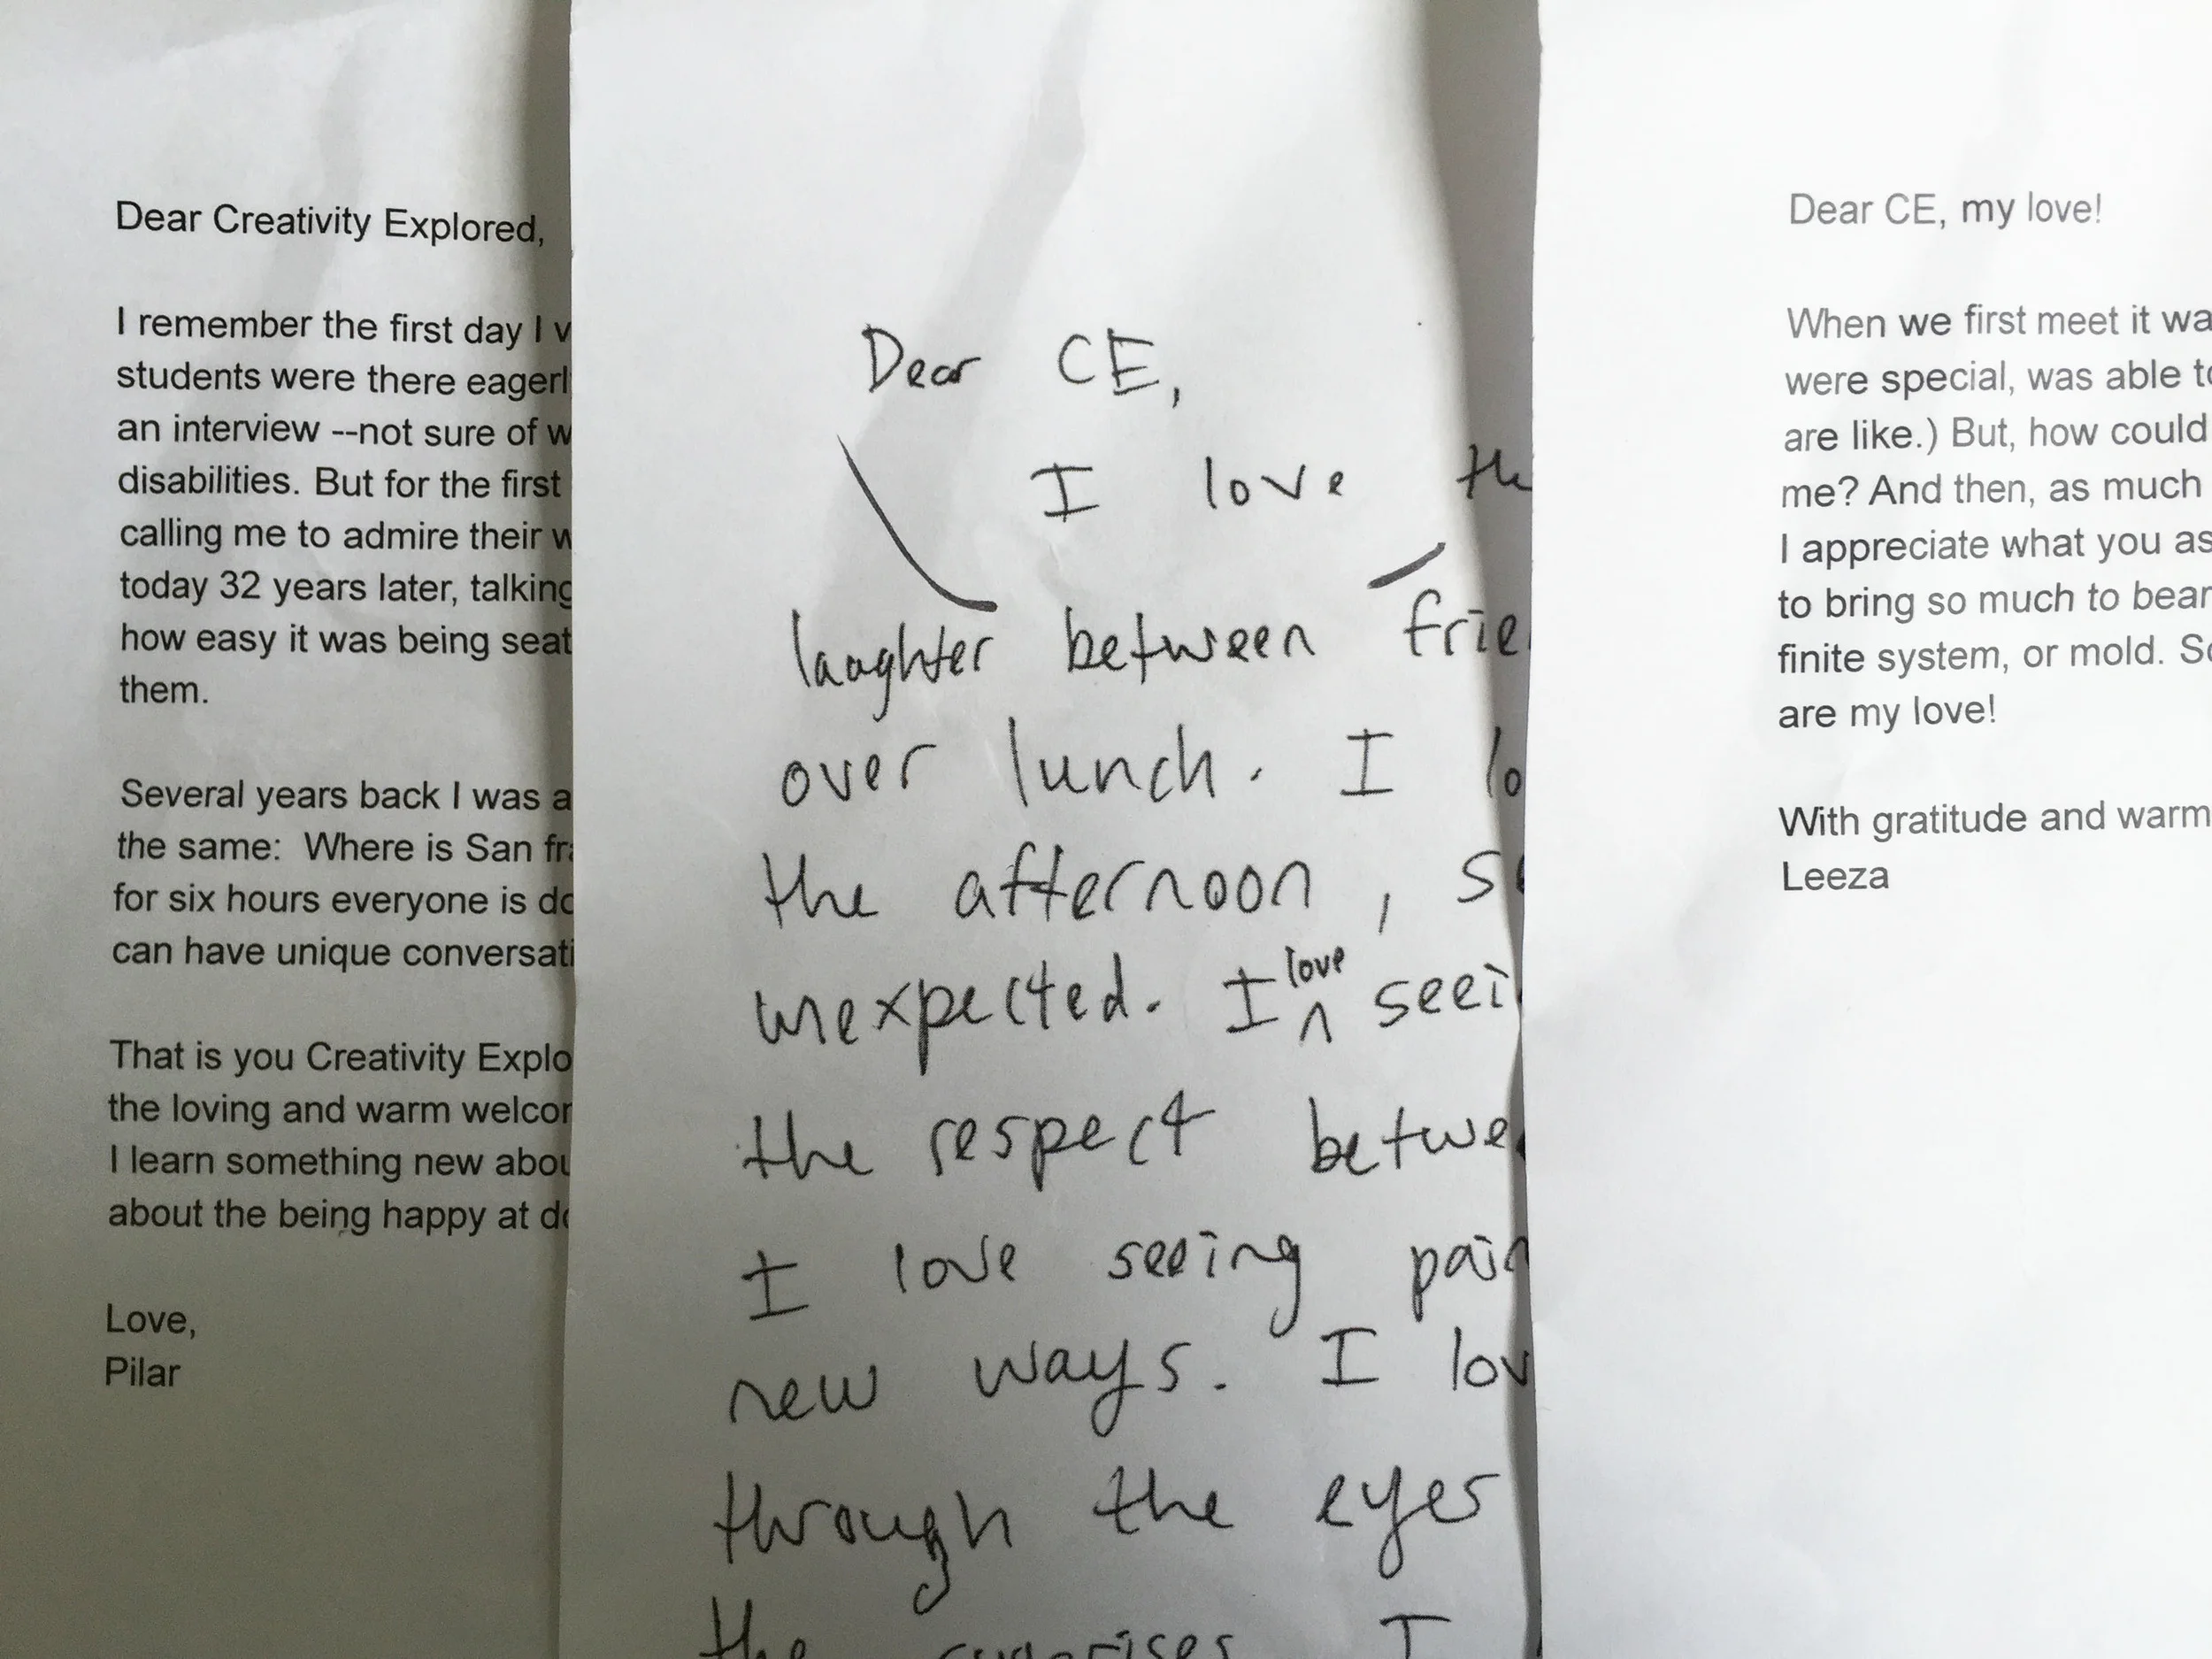 Dear Creativity Explored,
I remember the first day I
students were there
an interview --not sure of
disabilities. But for the first
calling me to admire their
today 32 years later,
how easy it was being
them.
Several years back I was
the same: Where is San
for six hours everyone is
can have unique
That is you Creativity
the loving and warm
I learn something new
about the being happy at
Love,
Pilar
Dear CE,
I love
laughter between
over lunch. I
the afternoon,
unexpected. I love
the respect
I love seeing
new ways. I
through the eyes
the surprises I
Dear CE, my love!
When we first meet it
were special, was able
are like.) But, how could
me? And then, as much
I appreciate what you
to bring so much to bear
finite system, or mold.
are my love!
With gratitude and
Leeza